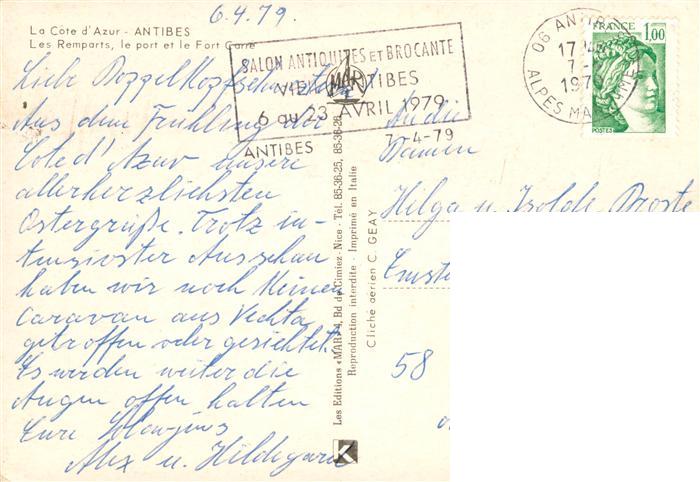 6.4.79.
La Côte d'Azur - ANTIBES
Les Remparts, le port et le Fort Carré
SALON ANTIQUITES et BROCANTE
VIEIL ANTIBES
6 au 23 AVRIL 1979
ANTIBES 7-4-79
06 ANTIBES
17
7-
1979
ALPES MARITIMES
FRANCE
1,00
POSTES
Liebe Doppelkopfschwestern
Aus dem Frühling der
Cote d'Azur unsere
allerherzlichsten
Ostergrüße. Trotz in-
tensivster Ausschau
haben wir noch keinen
Caravan aus Vechta
getroffen oder gesichtet.
Es werden weiter die
Augen offen halten
Eure
Alex u. Hildegard
Les Editions «MAR», 4, Bd de Cimiez - Nice - Tél. 85-36-25, 85-36-26
Reproduction interdite - Imprimé en Italie
Cliché aérien C. GEAY
K
An die
Damen
Helga u. Isolde Droste
Emste
58